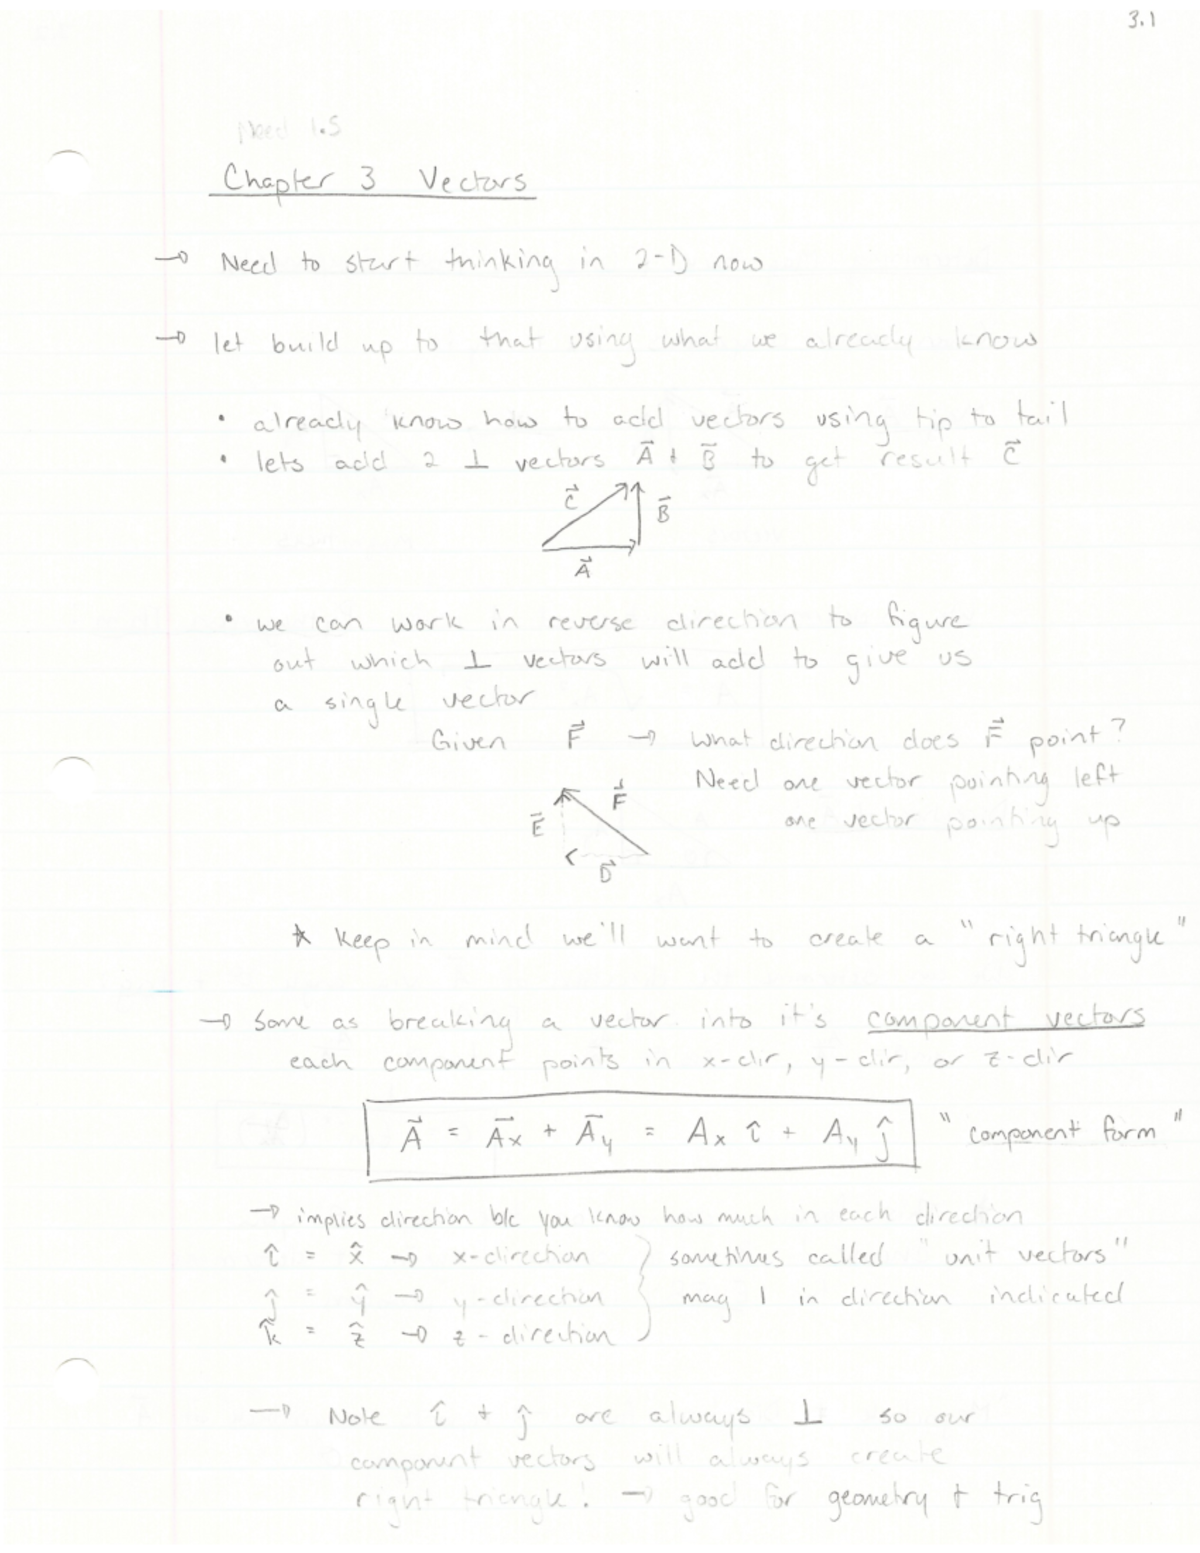 3.1
Need 1.5
Chapter 3 Vectors
→ Need to start thinking in 2-D now
→ let build up to that using what we already know
• already know how to add vectors using tip to tail
• lets add 2 ⊥ vectors A⃗ + B⃗ to get result C⃗
C⃗
B⃗
A⃗
• we can work in reverse direction to figure
out which ⊥ vectors will add to give us
a single vector
Given F⃗ → What direction does F⃗ point?
Need one vector pointing left
one vector pointing up
F⃗
E⃗
D⃗
* Keep in mind we'll want to create a "right triangle"
→ Same as breaking a vector into it's component vectors
each component points in x-dir, y-dir, or z-dir
A⃗ = A⃗x + A⃗y = Ax î + Ay ĵ "component form"
→ implies direction b/c you know how much in each direction
î = x̂ → x-direction } sometimes called "unit vectors"
ĵ = ŷ → y-direction mag 1 in direction indicated
k̂ = ẑ → z-direction
→ Note î + ĵ are always ⊥ so our
component vectors will always create
right triangle! → good for geometry + trig